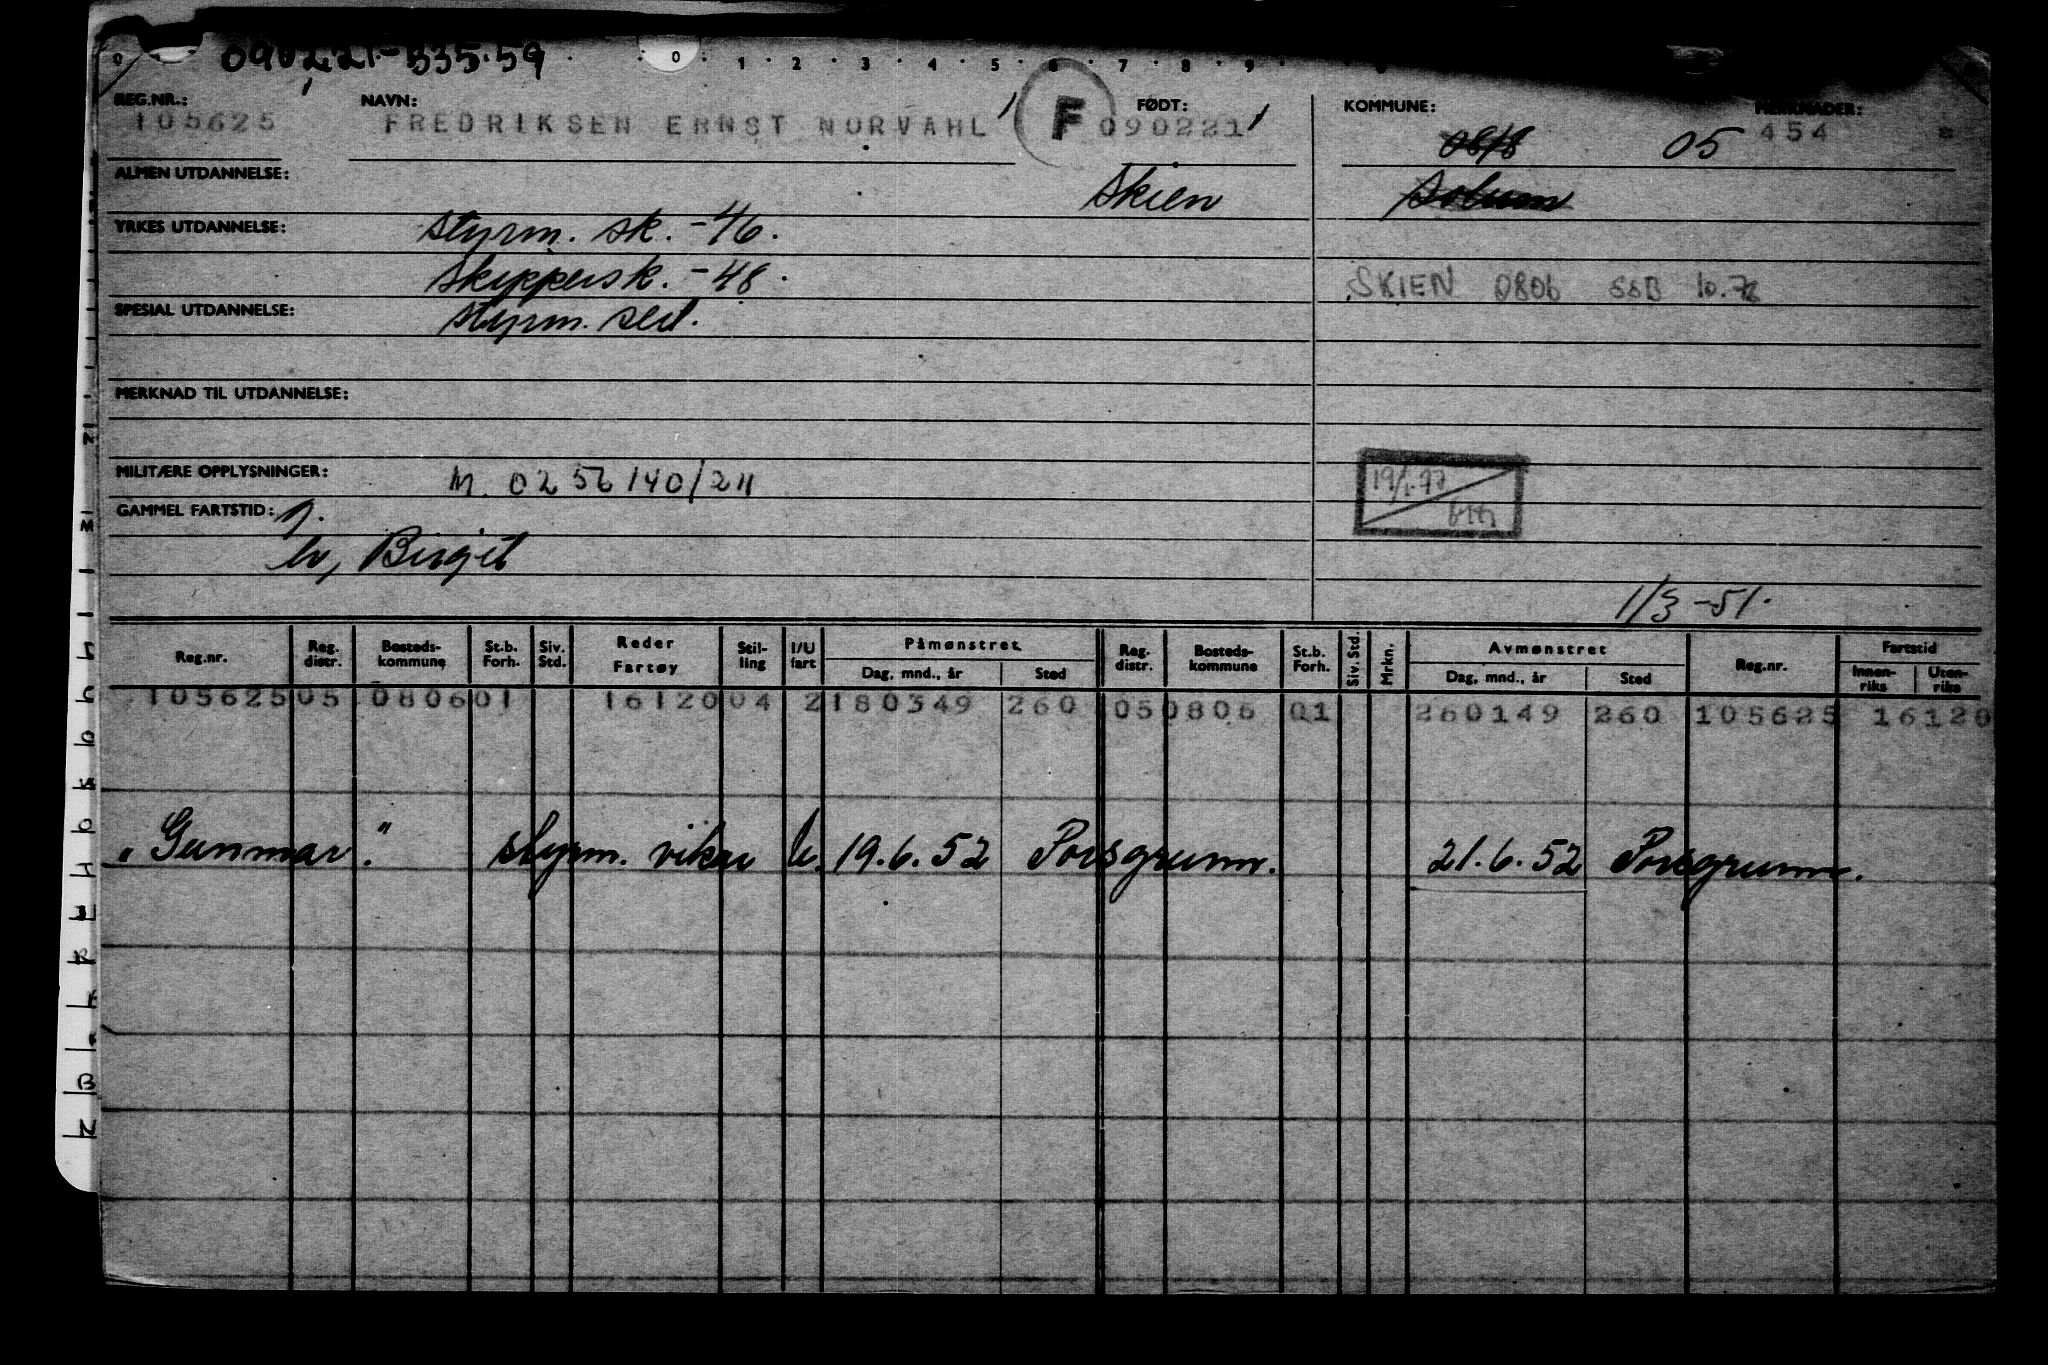 090221-535.59
0 1 2 3 4 5 6 7 8 9
REG.NR.: NAVN: F FØDT: KOMMUNE: MERKNADER:
105625 FREDRIKSEN ERNST NORVAHL 090221 0818 05 454
ALMEN UTDANNELSE: Skien Solum
YRKES UTDANNELSE: styrm. sk. -46.
skippersk. -48. SKIEN 0806 SSB 10.78
SPESIAL UTDANNELSE: styrm. sert.
MERKNAD TIL UTDANNELSE:
MILITÆRE OPPLYSNINGER: M. 0256140/211
19/1-77
GAMMEL FARTSTID: J.
Birgit
1/3-51.
Reg.nr. Reg. distr. Bosteds-kommune St.b. Forh. Siv. Std. Reder Fartøy Stil-ling I/U fart Påmønstret Dag, mnd., år Sted Reg. distr. Bosteds-kommune St.b. Forh. Siv. Std. Mrkn. Avmønstret Dag, mnd., år Sted Reg.nr. Fartstid Innen-riks Uten-riks
105625 05 0806 01 16120 04 2 180349 260 05 0806 01 260149 260 105625 16120
"Gunmar." styrm. vikar U. 19.6.52 Porsgrunn. 21.6.52 Porsgrunn.